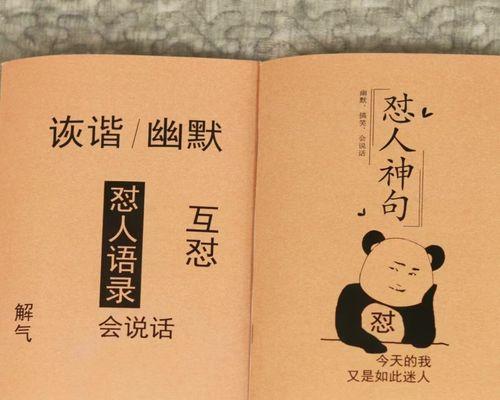 诙谐/幽默
怼人语录
互怼
解气
会说话
怼人神句
幽默，搞笑，会说话
怼
今天的我
又是如此迷人